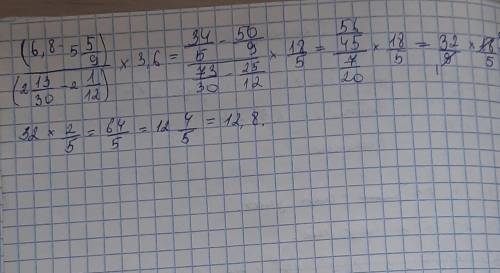 (6,8 - 5 5/9) / (2 13/30 - 2 1/12) × 3,6 = (34/5 - 50/9) / (73/30 - 25/12) × 18/5 = (56/45) / (7/20) × 18/5 = 32/9 × 18/5 =
32 × 2/5 = 64/5 = 12 4/5 = 12,8.